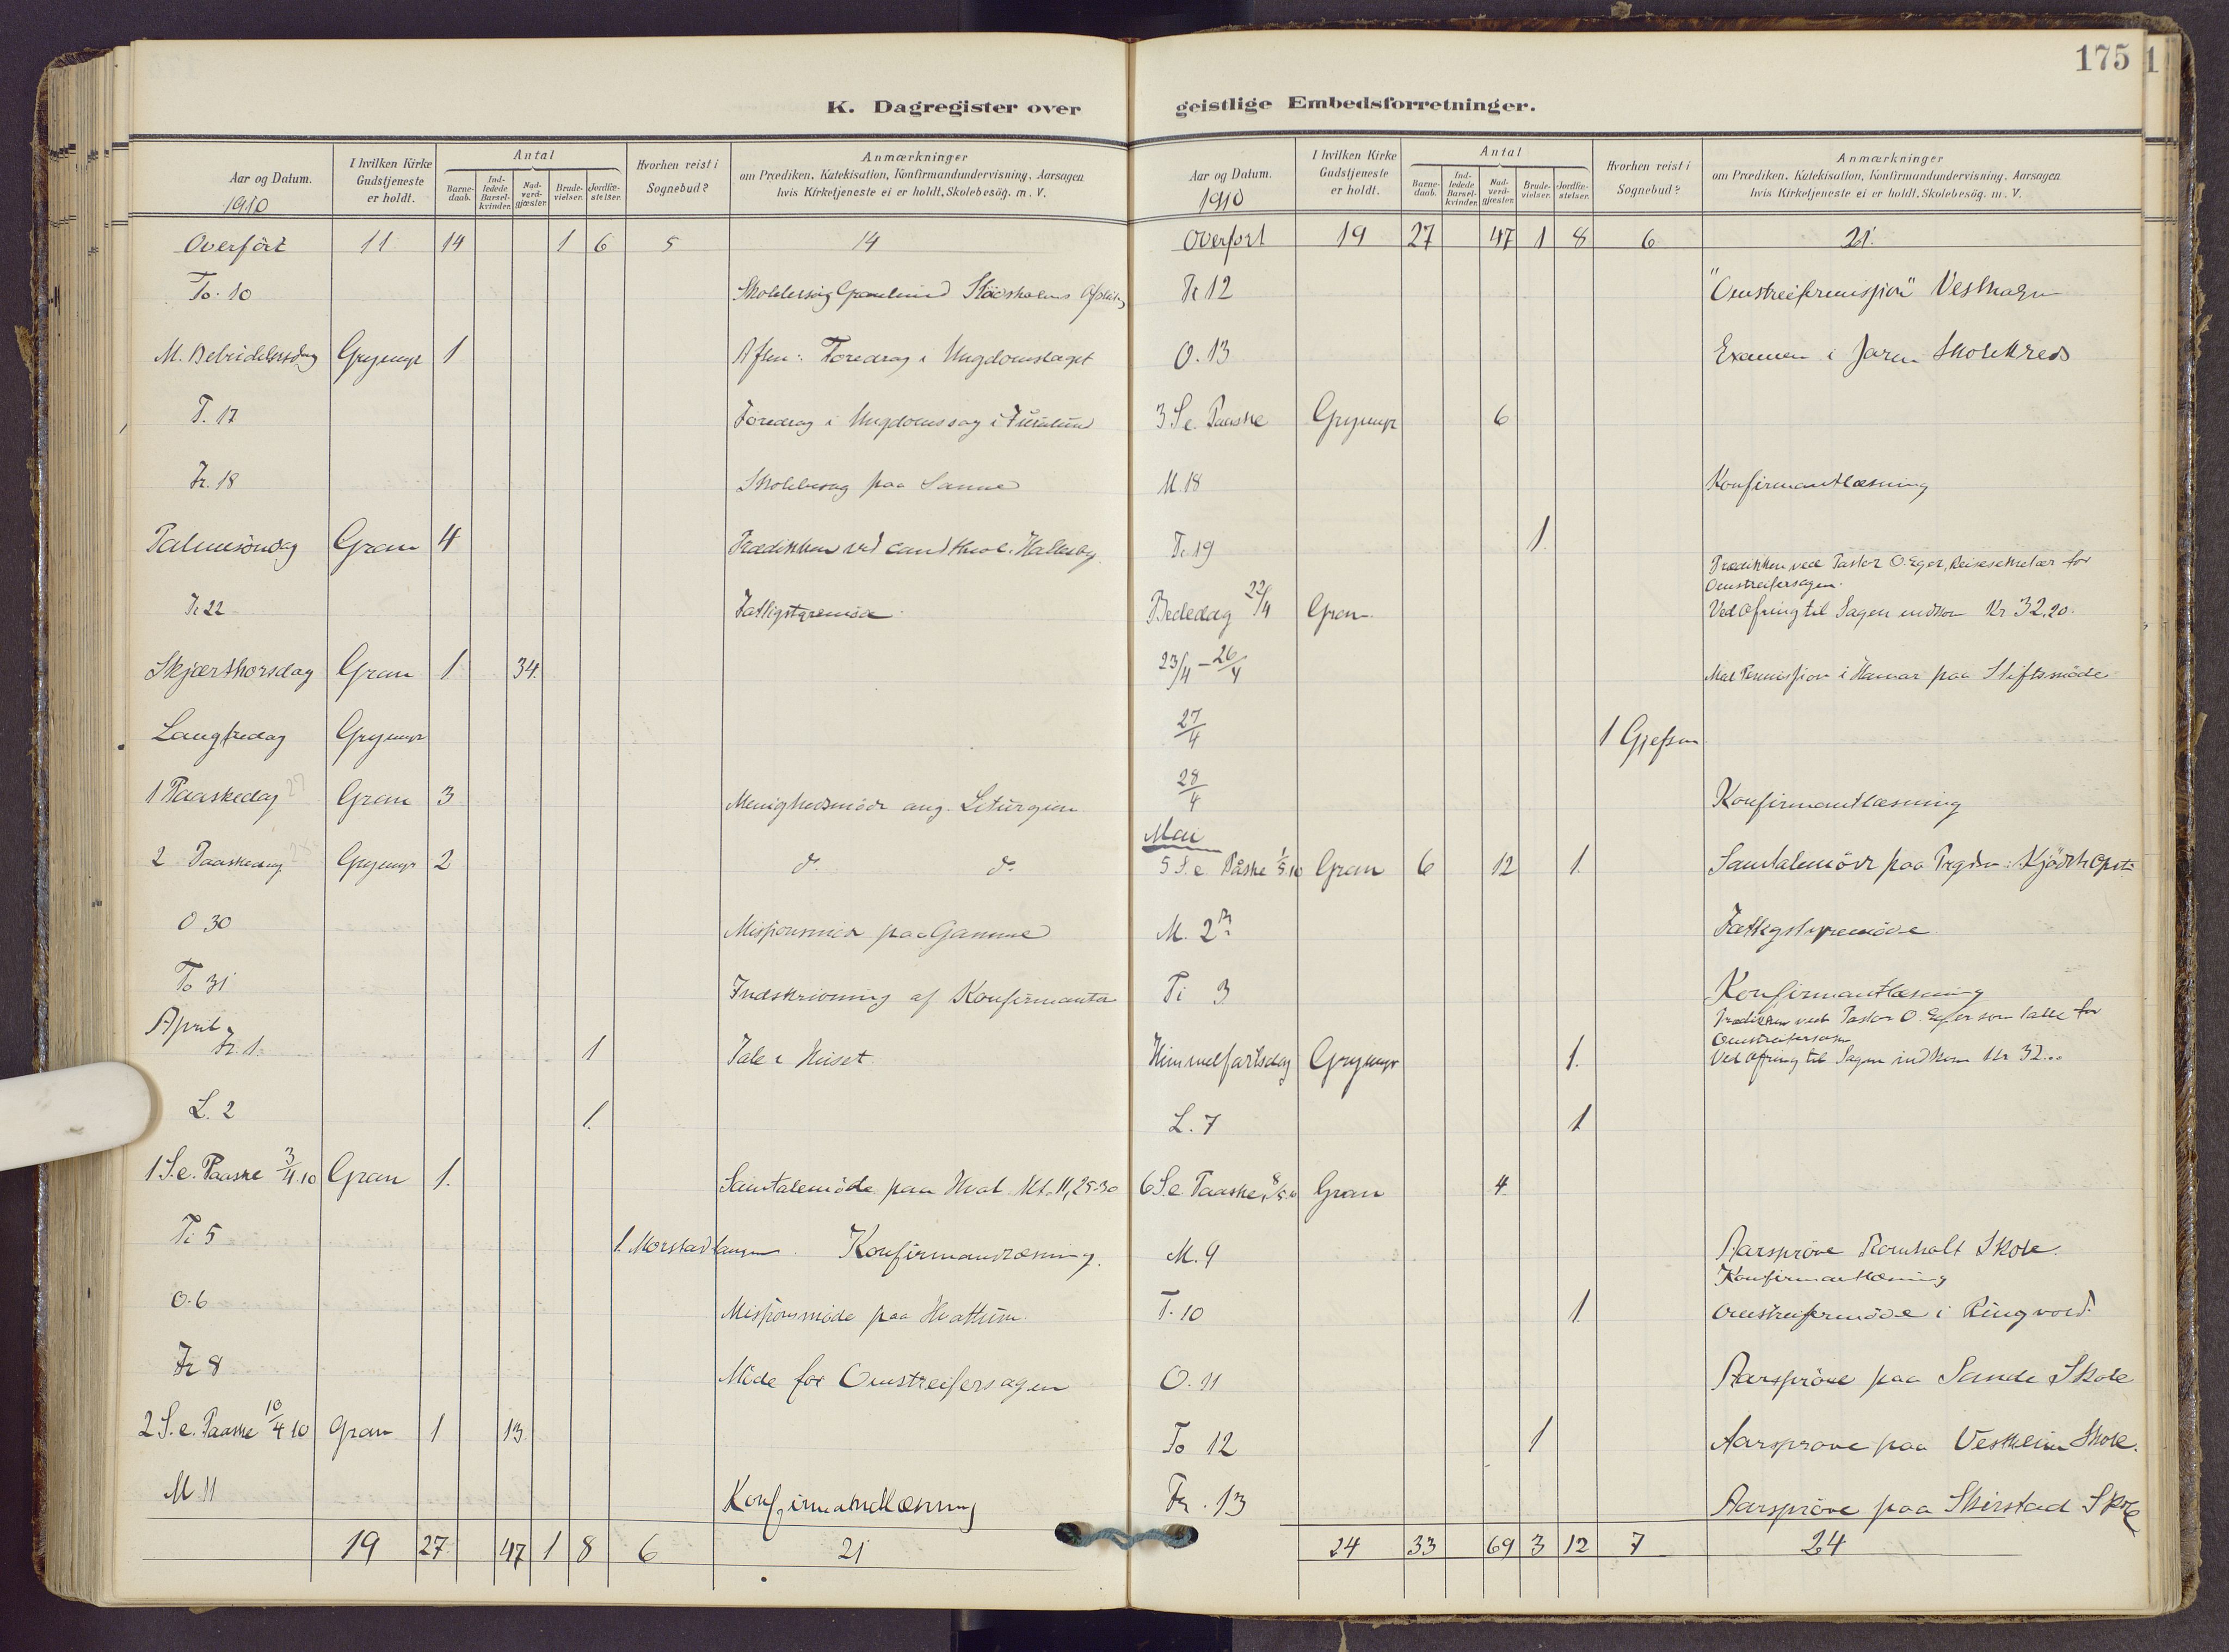 K. Dagregister over
Aar og Datum. I hvilken Kirke Gudstjeneste er holdt. Antal Barne-daab. Ind-ledede Barsel-kvinder. Nad-verd-gjæster. Brude-vielser. Jordfæ-stelser. Hvorhen reist i Sognebud? Anmærkninger om Præediken, Katekisation, Konfirmandundervisning, Aarsagen hvis Kirketjeneste ei er holdt, Skolebesøg. m. V.
1910
Overført 11 14 1 6 5 14
To. 10
M. Bebudelsesdag Grymyr 1 Aften: Foredrag i Ungdomslaget
T. 17 Foredrag i i Furulund
Fr. 18 paa Sanne
Palmesöndag Gran 4 Prædikken ved cand theol. Hallesby
Ti 22 Fattigstyremöde
Skjærthorsdag Gran 1 34
Langfredag Grymyr
1 Paaskedag 27 Gran 3 Menighedsmöde ang. Liturgien
2 Paaskedag 28 Grymyr 2 do do
O 30 Missionsmöde paa Gamme
To 31 Indskrivning af Konfirmanter
April
Fr. 1. 1 Tale i Huset
L. 2 1.
1 S.e. Paaske 3/4.10 Gran 1. Samtalemöde paa Hval Mt. 11, 25-30
Ti 5 1. Morstadlangen Konfirmandlæsning.
O. 6 Missionsmöde paa Hvattum
Fr 8 Möde for Omstreifersagen
2 S.e. Paaske 10/4 10 Gran 1 13
M 11 Konfirmandlæsning
19 27 47 1 8 6 21
175
geistlige Embedsforretninger.
Aar og Datum. I hvilken Kirke Gudstjeneste er holdt. Antal Barne-daab. Ind-ledede Barsel-kvinder. Nad-verd-gjæster. Brude-vielser. Jordfæ-stelser. Hvorhen reist i Sognebud? Anmærkninger om Præediken, Katekisation, Konfirmandundervisning, Aarsagen hvis Kirketjeneste ei er holdt, Skolebesøg. m. V.
1910
Overfört 19 27 47 1 8 6 21.
Ti 12 "Omstreifermission"
O. 13 Examen i Jaren Skolekreds
3 S.e. Paaske Grymyr 6
M. 18 Konfirmantlæsning
Ti 19 1
Prædikken ved Pastor O. Eger, Reisesekretær for
Omstreifersagen.
Bededag 22/4 Gran. Ved Ofring til Sagen indkom Kr 32,20.
23/4 - 26/4 Med Permission i Hamar paa Stiftsmöde
27/4 1 Gjefsen
28/4 Konfirmantlæsning
Mai
5 S.e Påske 1/5 10 Gran 6 12 1. Samtalemöde paa
M. 2den Fattigstyremöde
Ti 3 Konfirmantlæsning
Prædikken ved Pastor O. Eger som talte for
Omstreifersagen
Himmelfartsdag Grymyr 1. Ved Ofring til Sagen indkom Kr 32..
L. 7 1
6 S.e. Paaske 8/5.10 Gran 4.
M. 9 Aarspröve Skole.
Konfirmantlæsning
T. 10 1. Omstreifermöde i Ringvold.
O. 11 Aarspröve paa Sande Skole
To 12 1 Aarspröve paa Vestheim Skole.
Fr. 13 Aarspröve paa Skirstad Skole
24 33 69 3 12 7 24